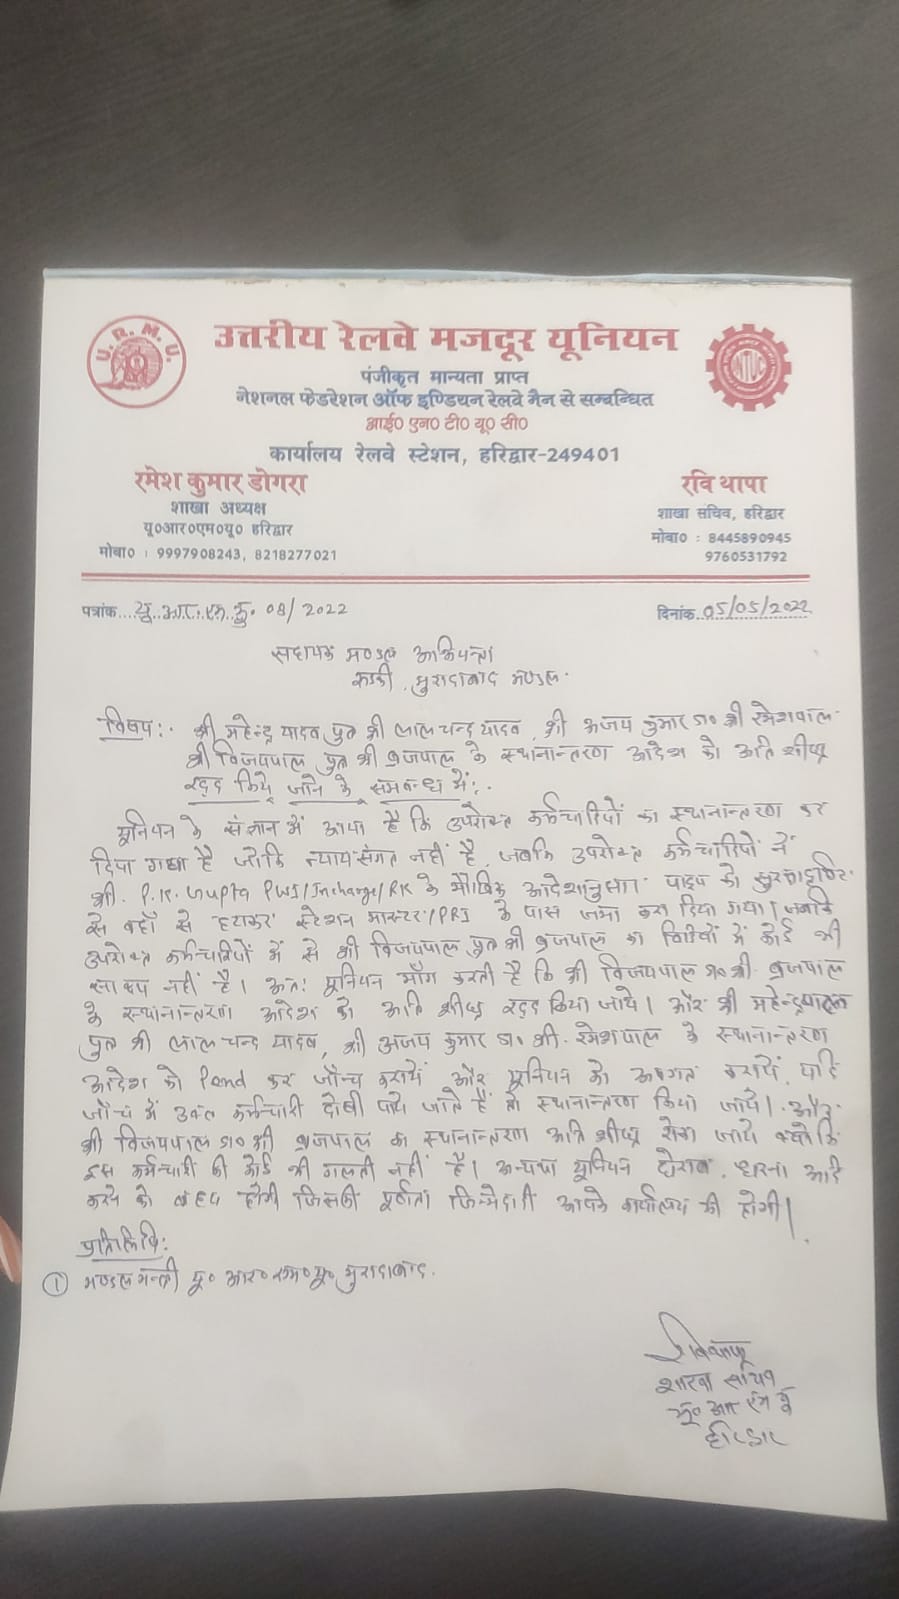 U. R. M. U.
उत्तरीय रेलवे मजदूर यूनियन
INTUC
पंजीकृत मान्यता प्राप्त
नेशनल फेडरेशन ऑफ इण्डियन रेलवे मैन से सम्बन्धित
आई० एन० टी० यू० सी०
कार्यालय रेलवे स्टेशन, हरिद्वार-249401
रमेश कुमार डोगरा
शाखा अध्यक्ष
यू०आर०एम०यू० हरिद्वार
मोबा० : 9997908243, 8218277021
रवि थापा
शाखा सचिव, हरिद्वार
मोबा० : 8445890945
9760531792
पत्रांक... यू. आर. एम. यू. 08/2022
दिनांक 05/05/2022
सहायक मण्डल अभियन्ता
रूडकी, मुरादाबाद मण्डल.
विषय:- श्री महेन्द्र यादव पुत्र श्री लाल चन्द यादव, श्री अजय कुमार S/o श्री रमेशपाल
श्री विजयपाल पुत्र श्री ब्रजपाल के स्थानान्तरण आदेश को अति शीघ्र
रद्द किये जाने के सम्बन्ध में:-
यूनियन के संज्ञान में आया है कि उपरोक्त कर्मचारियों का स्थानान्तरण कर
दिया गया है जोकि न्यायसंगत नहीं है, जबकि उपरोक्त कर्मचारियों ने
श्री. P.K. Gupta PWI/Incharge/RK के मौखिक आदेशानुसार को सुरक्षादृष्टि
से वहाँ से हटाकर स्टेशन मास्टर/PRI के पास जमा करा दिया गया। जबकि
उपरोक्त कर्मचारियों में से श्री विजयपाल पुत्र श्री ब्रजपाल का में कोई भी
नहीं है। अतः यूनियन माँग करती है कि श्री विजयपाल S/o श्री ब्रजपाल
के स्थानान्तरण आदेश को अति शीघ्र रद्द किया जाये। और श्री
पुत्र श्री लाल चन्द यादव, श्री अजय कुमार S/o श्री. रमेशपाल के स्थानान्तरण
आदेश को Pend कर जाँच करायें और यूनियन को अवगत करायें, यदि
जाँच में उक्त कर्मचारी दोषी पाये जाते हैं तो स्थानान्तरण किया जाये। और
श्री विजयपाल S/o श्री ब्रजपाल का स्थानान्तरण अति शीघ्र रोका जाये क्योंकि
इस कर्मचारी की कोई भी गलती नहीं है। अन्यथा यूनियन घेराव, धरना आदि
करने को बाध्य होगी जिसकी पूर्णतः जिम्मेदारी आपके कार्यालय की होगी।
प्रतिलिपि:
① मण्डल मन्त्री यू० आर० एम० यू० मुरादाबाद.
रवि थापा
शाखा सचिव
यू० आर एम यू
हरिद्वार